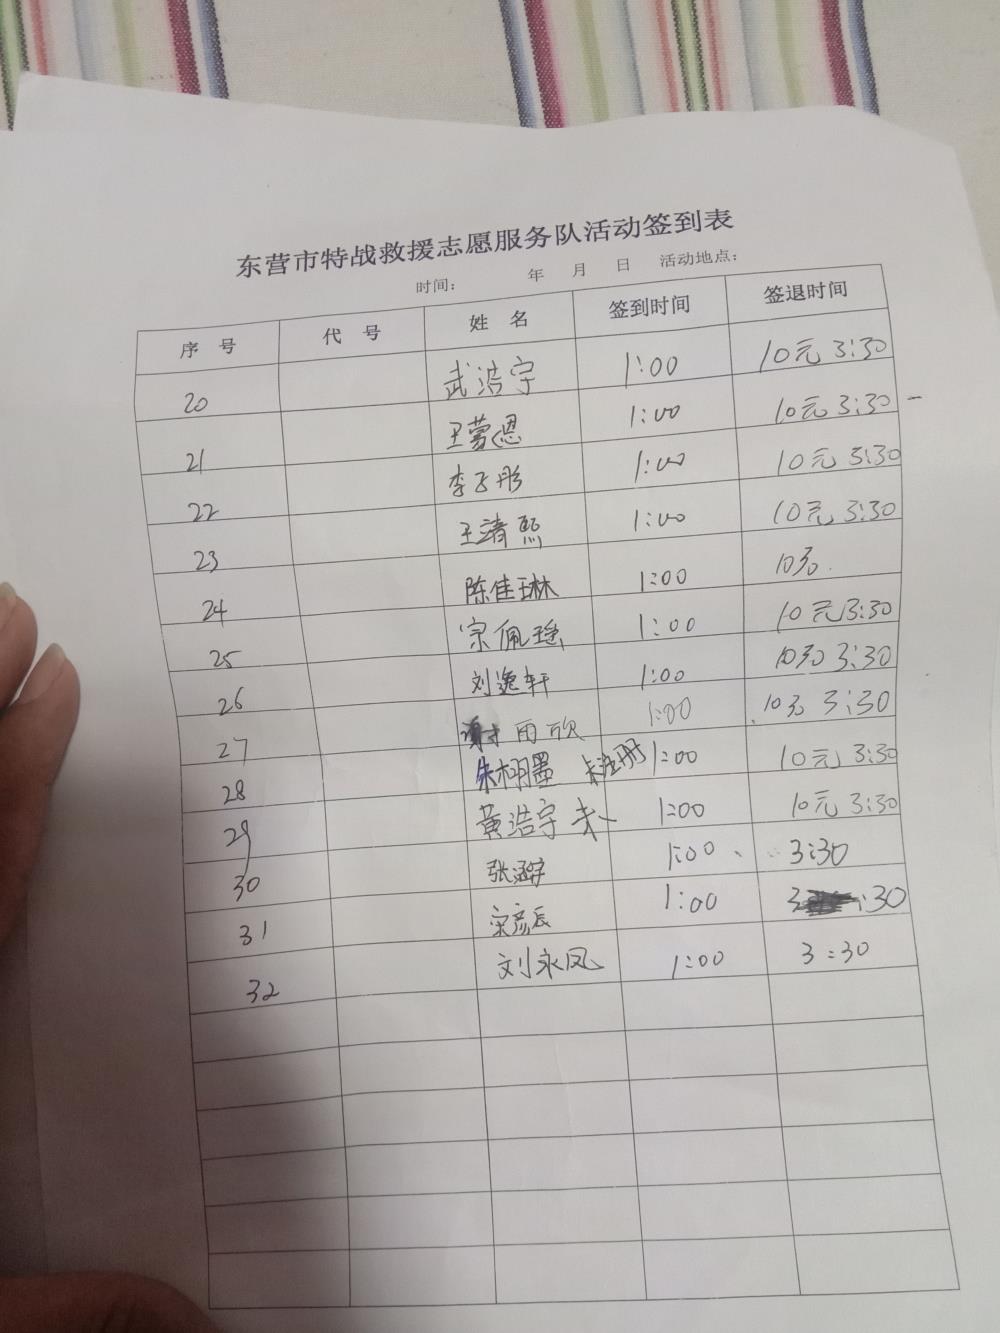 东营市特战救援志愿服务队活动签到表
时间： 年 月 日 活动地点：
序 号 代 号 姓 名 签到时间 签退时间
20 武浩宇 1:00 10元 3:30
21 王蒙恩 1:00 10元 3:30 -
22 李子彤 1:00 10元 3:30
23 王清熙 1:00 10元 3:30
24 陈佳琳 1:00 10元.
25 宗佩瑶 1:00 10元 3:30
26 刘逸轩 1:00 10元 3:30
27 雨欣 1:00 10元 3:30
28 朱栩墨 未注册 1:00 10元 3:30
29 黄浩宇 未 1:00 10元 3:30
30 张 1:00 3:30
31 宋彦辰 1:00 3:30
32 刘永凤 1:00 3:30